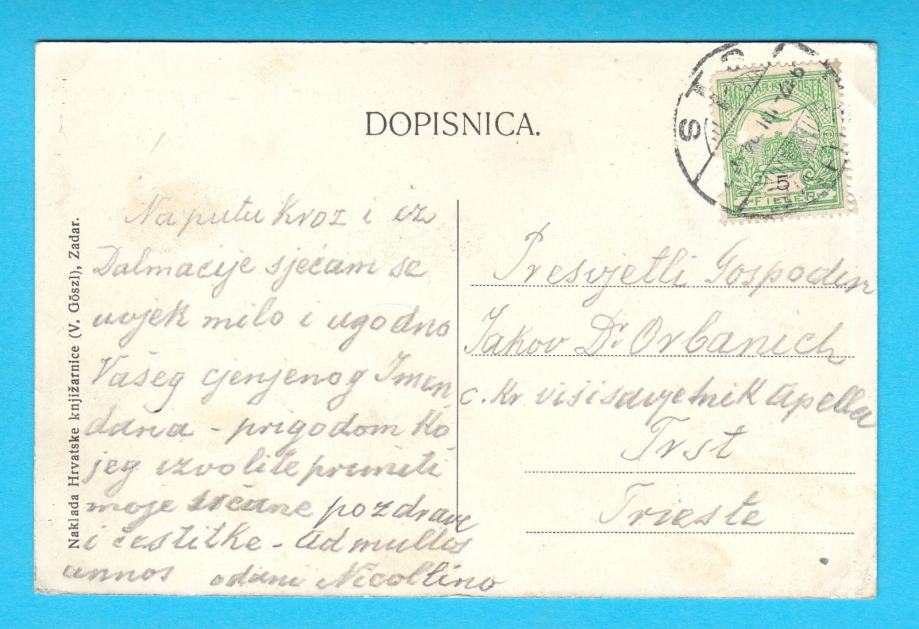 DOPISNICA.
MAGYAR KIR. POSTA
5
FILLER
Na putu kroz i iz
Dalmacije sjećam se
uvjek milo i ugodno
Vašeg cjenjenog Imen
dana - prigodom ko
jeg izvolite primiti
moje srčane pozdrave
i čestitke - ad multos
annos odani Nicolino
Presvjetli Gospodin
Jakov Dr Orbanich
c. kr viši savjetnik apella
Trst
Trieste
Naklada Hrvatske knjižarnice (V. Göszl), Zadar.